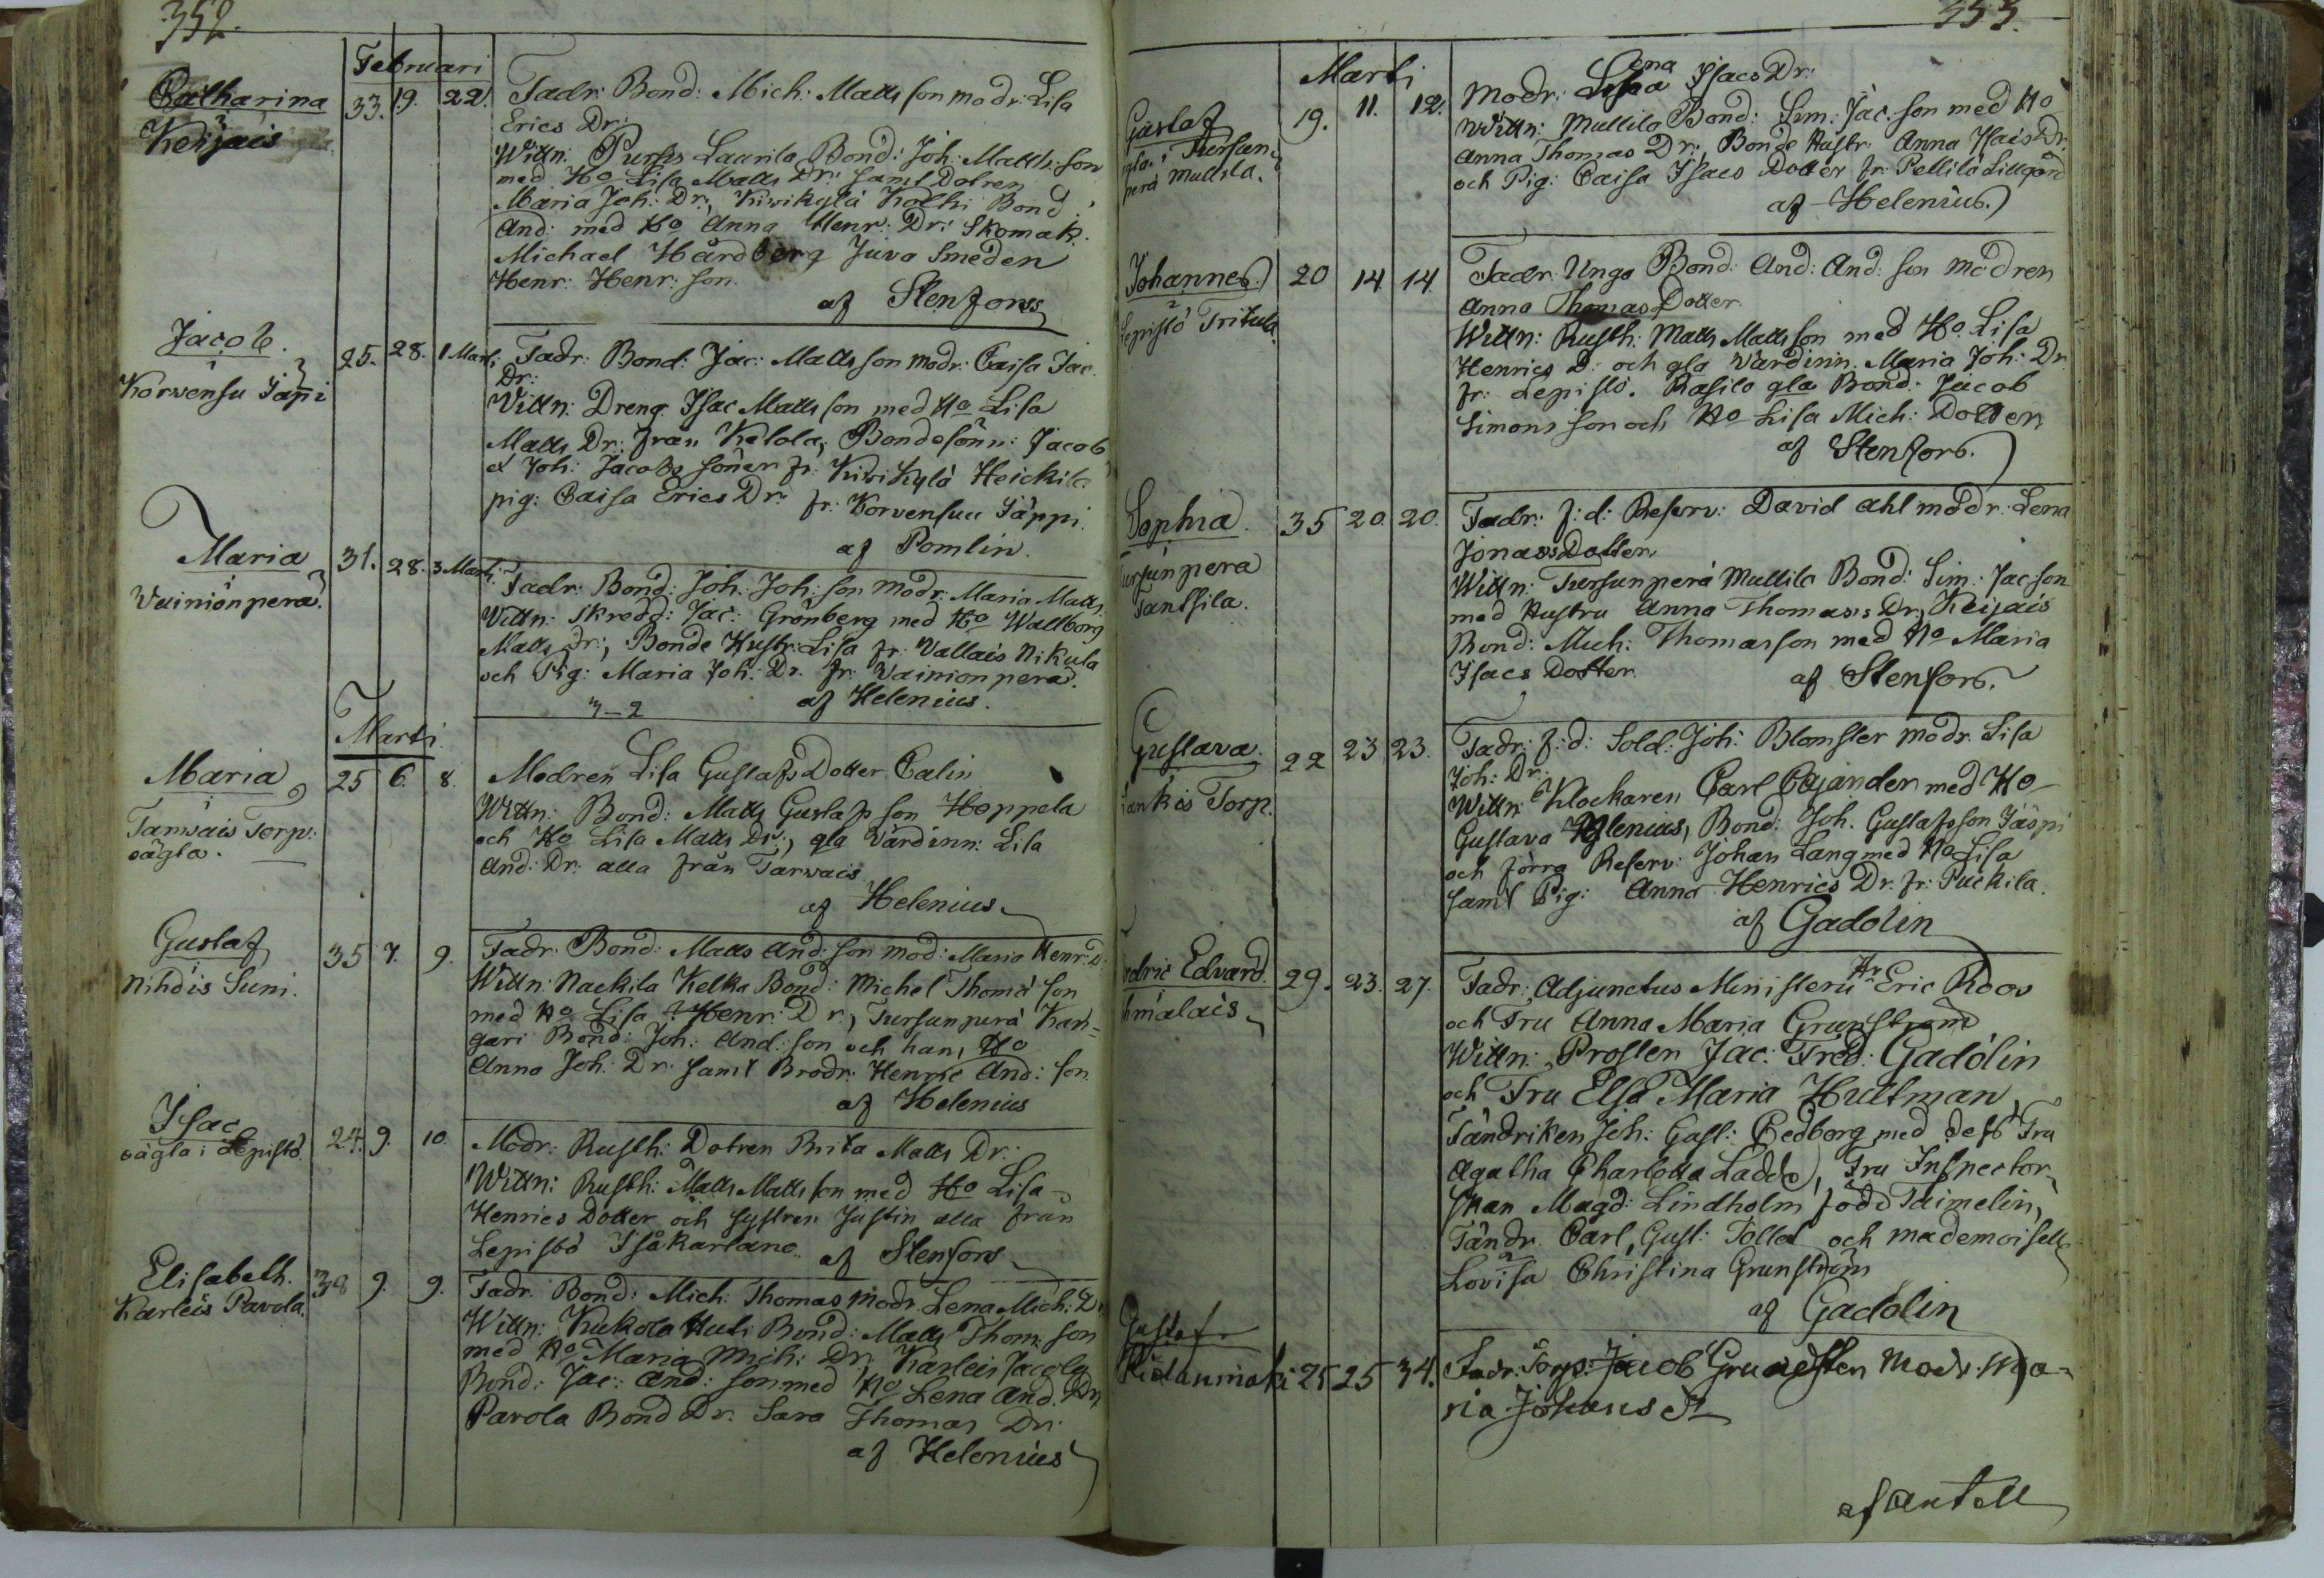 352.
Februari
Catharina
i
Keijais
33. 19. 22.
Fadr: Bond: Mich: Matts son modr: Lisa
Erics Dr:
Wittn: Laurila Bond: Joh: Matts: son
med Ho Lisa Matts Dr: samt Dotren
Maria Joh: Dr:, Kivikylä Kolhi Bond:
And: med Ho Anna Henr: Dr: Skomak:
Michael Hårdberg Juva Smeden
Henr: Henr: son.
af Stenfors
Jacob.
i
Korvensu Jäpi
25. 28. 1 Marti
Fadr: Bond: Jac: Matts son modr: Caisa Jac.
Dr:
Vittn: Dreng Isac Matts son med Ho Lisa
Matts Dr: från Kälola, Bondesönn: Jacob
et Joh: Jacobs söner fr: Kivikylä Heickilä
pig: Caisa Erics Dr: fr: Korvensuu Jäppi.
af Pomlin.
Maria
i
Vainiönperä
31. 28. 3 Marti
Fadr: Bond: Joh: Joh: son modr: Maria Matts
Vittn: Skredd: Jac: Grönberg med Ho Wallborg
Matts Dr:, Bonde Hustr: Lisa fr: Vallais Nikula
och Pig: Maria Joh: Dr. fr: Vainionpera.
3-2 af Helenius.
Marti
Maria
i
Tarwais Torp:
oägta.
25 6. 8.
Modren Lisa Gustafs Dotter Calin
Wittn: Bond: Matts Gustafs son Hoppela
och Ho Lisa Matts Dr:, gla Värdinn: Lisa
And: Dr: alla från Tarwais
af Helenius
Gustaf
i
Nihdis Suni.
35 7. 9.
Fadr: Bond: Matts And: son mod: Maria Henr: D:
Wittn: Nackila Kelka Bond: Michel Thomæ son
med Ho Lisa Henr: Dr:, Tursunperä Kan=
gari Bond: Joh: And: son och hans Ho
Anna Joh: Dr. samt Brodr: Henric And: son
af Helenius
Isac
oägta i Lepistö.
24. 9. 10.
Modr: Rusth: Dotren Brita Matts Dr:
Wittn: Rusth: Matts Matts son med Ho Lisa
Henrics Dotter och systren Justin alla från
Lepistö Isåkartano. af Stenfors
Elisabeth.
Karleis Pavola.
38 9. 9.
Fadr. Bond: Mich: Thomas modr. Lena Mich: Dr
Wittn: Kukola Huti Bond: Matts Thom: son
med Ho Maria Mich: Dr. Karleis Jacola
Bond: Jac: And: son med Ho Lena And. Dr,
Pavola Bond Dr. Sara Thomas Dr:
af Helenius
353.
Marti
Gustaf
i Tursun-
perä Mullila.
19. 11. 12.
Modr: Lena Isacs Dr:
Wittn: Mullila Bond: Sim: Jac: son med Ho
Anna Thomas Dr:, Bonde Hustr: Anna Isacs Dr.
och Pig: Caisa Isacs Dotter fr: Pellilä Lillgård
af Helenius.
Johannes
i
Lepistö Tritula.
20 14 14
Fadr: Unga Bond: And: And: son modren
Anna Thomas Dotter
Wittn: Rusth: Matts Matts son med Ho Lisa
Henrics D: och gla Värdinn. Maria Joh: Dr
fr: Lepistö. Rasila gla Bond: Jacob
Simons son och Ho Lisa Mich: Dotter
af Stenfors.
Sophia.
Tursunpera
Tantsila.
35 20. 20.
Fadr: f: d: Reserv: David Ahl modr: Lena
Jonæ Dotter
Wittn: Tursunperä Mullila Bond: Sim: Jac son
med Hustru Anna Thomas Dr, Keijais
Bond: Mich: Thomas son med Ho Maria
Isacs Dotter. af Stenfors.
Gustava.
Torp.
22 23 23.
Fadr: f: d: Sold: Joh: Blomster modr: Lisa
Joh: Dr:
Wittn: Klockaren Carl Cajander med Ho
Gustava Helenius, Bond: Joh. Gustafsson Jäspi
och förra Reserv: Johan Lang med Ho Lisa
samt Pig: Anna Henrics Dr. fr: Puckila.
af Gadolin
Edvard.
29. 23. 27.
Fadr: Adjunctus Ministerii Hr Eric Roos
och Fru Anna Maria Grunström
Wittn: Prosten Jac: Fred: Gadolin
och Fru Elsa Maria Hultman,
Fändriken Joh: Gust: Cedborg med dess Fru
Agatha Charlotta Ladde, Fru Inspector-
skan Magd: Lindholm född Taimelin,
Fändr. Carl Gust: Toll och mademoiselle
Lovisa Christina Grunström
af Gadolin
Gustaf
Ristanimaki
25 25 34.
Fadr: Torp: Jacob Grundsten Modr: Ma=
ria Johans Dr
af Antell